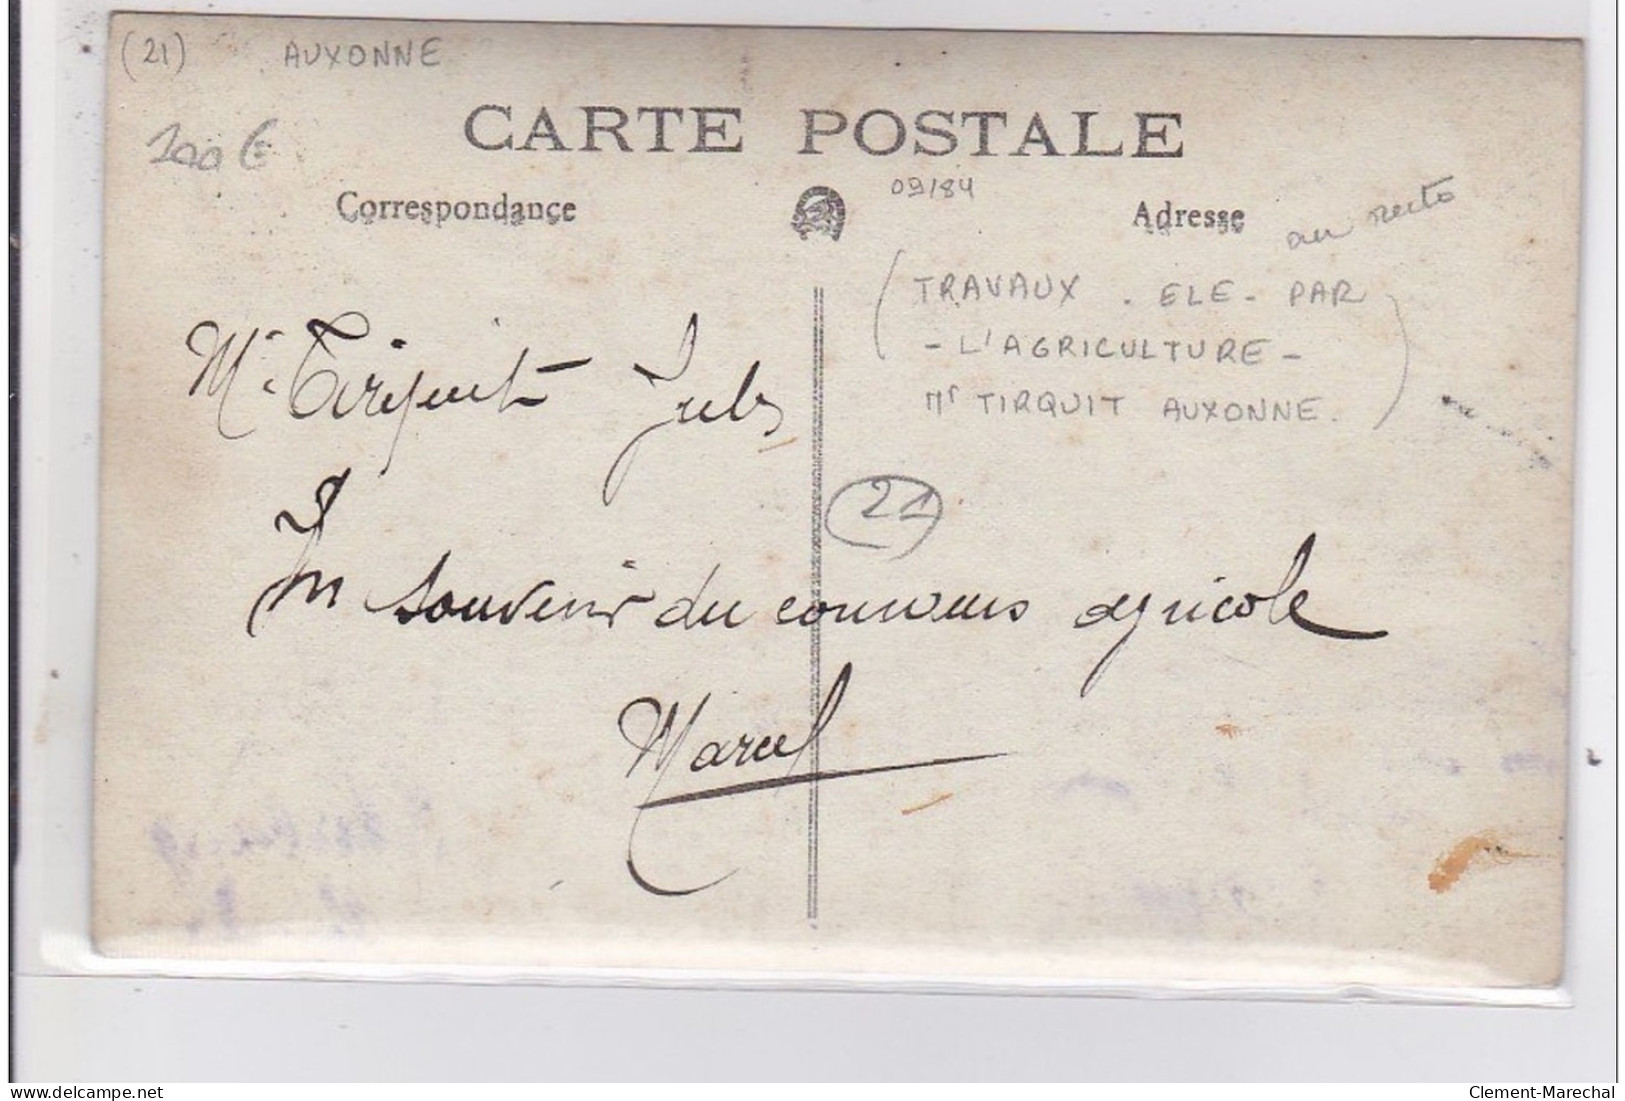 (21) AUXONNE
CARTE POSTALE
100 €
09/84
Correspondance
Adresse
au recto
(TRAVAUX . ELE - PAR
- L'AGRICULTURE -
Mr TIRQUIT AUXONNE.)
Mr Tirquit Jules
21
Un souvenir du concours agricole
Marcel
delcampe.net
Clement-Marechal